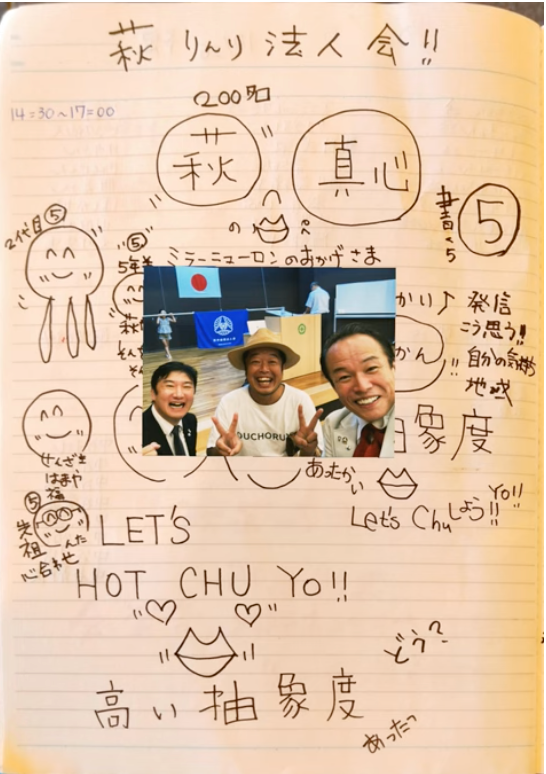 萩 りんり 法人 会!!
14=30~17=00
200名
萩
真心
の
2代目⑤
⑤
5年
書く5
⑤
ミラーニューロンのおかげさま
かり♪
発信
こう思う!!
自分の気持ち
地域
かん!!
萩
OUCHORU
象度
あったかい
せんざき
はまや
福
Let's Chuしよう!! Yo!!
⑤
先祖
心合わせ
LET'S
HOT CHU Yo!!
どう?
高い抽象度
あったっ